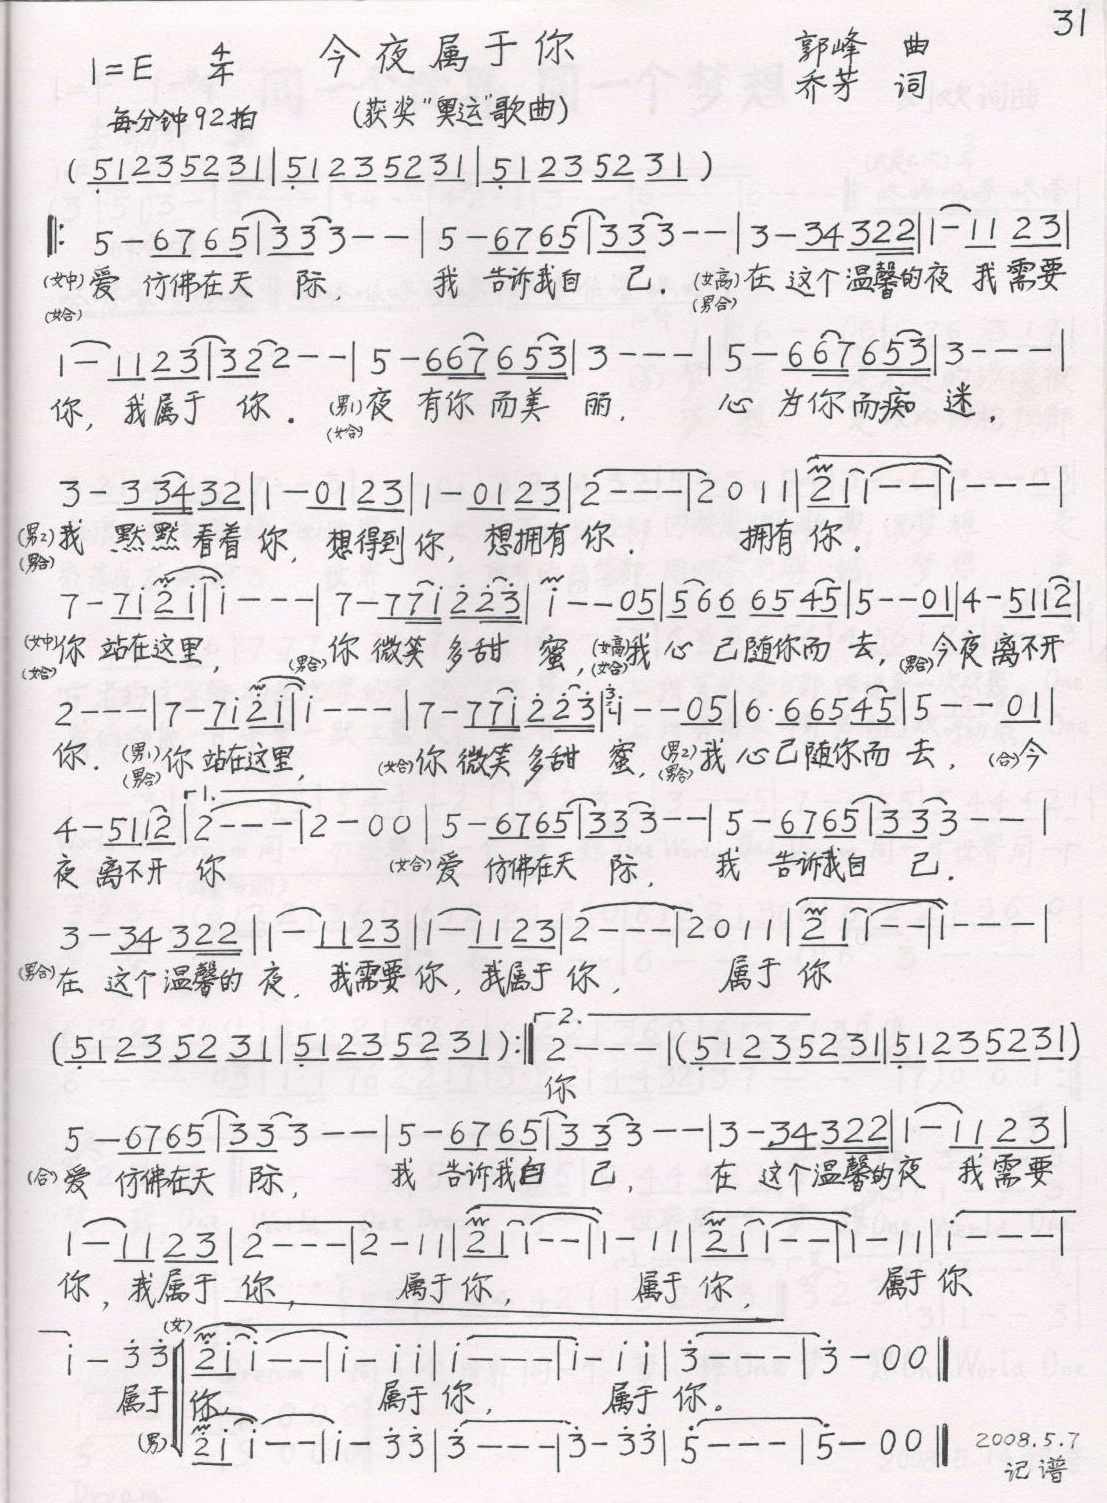 31
1=E 4/4 今夜属于你 郭峰 曲
每分钟92拍 (获奖"奥运"歌曲) 乔芳 词
( 5123 5231 | 5123 5231 | 5123 5231 )
‖: 5 - 6765 | 333 - - | 5 - 6765 | 333 - - | 3 - 34 322 | 1 - 11 23 |
(女中)爱 仿佛在天 际, 我 告诉我自 己. (女高)在 这个温馨的夜 我需要
(女合) (男合)
1 - 11 23 | 322 - - | 5 - 667 653 | 3 - - - | 5 - 667 653 | 3 - - - |
你, 我属于 你. (男1)夜 有你 而美 丽, 心 为你而痴 迷,
(女合)
3 - 3 34 32 | 1 - 01 23 | 1 - 01 23 | 2 - - - | 2 0 1 1 | 2 1 1 - - | 1 - - - |
(男2)我 默默看着 你, 想得到 你, 想拥有 你. 拥有 你.
(男合)
7 - 71 21 | 1 - - - | 7 - 771 223 | 1 - - 05 | 566 6545 | 5 - - 01 | 4 - 5112 |
(女中)你 站在这里, (男合)你 微笑 多甜 蜜, (女高)我 心 已随你而 去, (男合)今夜 离不开
(女合) (女合)
2 - - - | 7 - 71 21 | 1 - - - | 7 - 771 223 | 1 - - 05 | 6·66545 | 5 - - 01 |
你. (男1)你 站在这里, (女合)你 微笑 多甜 蜜, (男2)我 心已随你而 去, (合)今
(男合) (男合)
4 - 5112 | 1. 2 - - - | 2 - 0 0 | 5 - 6765 | 333 - - | 5 - 6765 | 333 - - |
夜 离不开 你 (女合)爱 仿佛在天 际, 我 告诉我自 己.
3 - 34 322 | 1 - 11 23 | 1 - 11 23 | 2 - - - | 2 0 1 1 | 2 1 1 - - | 1 - - - |
(男合)在 这个温馨的 夜, 我需要 你, 我属于 你, 属于 你
( 5123 5231 | 5123 5231 ) :‖ 2. 2 - - - | ( 5123 5231 | 5123 5231 )
你
5 - 6765 | 333 - - | 5 - 6765 | 333 - - | 3 - 34 322 | 1 - 11 23 |
(合)爱 仿佛在天 际, 我 告诉我自 己, 在 这个温馨的夜 我需要
1 - 11 23 | 2 - - - | 2 - 11 | 2 1 1 - - | 1 - 11 | 2 1 1 - - | 1 - 11 | 1 - - - |
你, 我属于 你, 属于你, 属于 你, 属于 你
1 - 3 3 (女) 2 1 1 - - | 1 - 1 1 | 1 - - - | 1 - 1 1 | 3 - - - | 3 - 0 0 ‖
属于 你, 属于 你, 属于 你。
(男) 2 1 1 - - | 1 - 3 3 | 3 - - - | 3 - 3 3 | 5 - - - | 5 - 0 0 ‖
2008.5.7
记谱